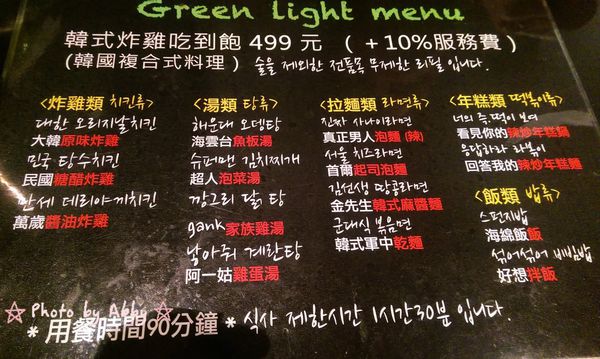 Green light menu
韓式炸雞吃到飽 499 元 ( +10%服務費)
(韓國複合式料理) 술을 제외한 전품목 무제한 리필 입니다.
<炸雞類 치킨류>
대한 오리지날치킨
大韓原味炸雞
민국 탕수치킨
民國糖醋炸雞
만세 데리야끼치킨
萬歲醬油炸雞
<湯類 탕류>
해운대 오뎅탕
海雲台魚板湯
슈퍼맨 김치찌개
超人泡菜湯
깡그리 닭 탕
gank家族雞湯
낳아줘 계란탕
阿一姑雞蛋湯
<拉麵類 라면류>
진짜 사나이라면
真正男人泡麵(辣)
서울 치즈라면
首爾起司泡麵
김선생 땅콩라면
金先生韓式麻醬麵
군대식 볶음면
韓式軍中乾麵
<年糕類 떡볶이류>
너의 즉.떡이 보여
看見你的辣炒年糕鍋
응답하라 라볶이
回答我的辣炒年糕麵
<飯類 밥류>
스펀지밥
海綿飯飯
섞어섞어 비빔밥
好想拌飯
☆ Photo by Abby ☆
* 用餐時間90分鐘 * 식사 제한시간 1시간30분 입니다.